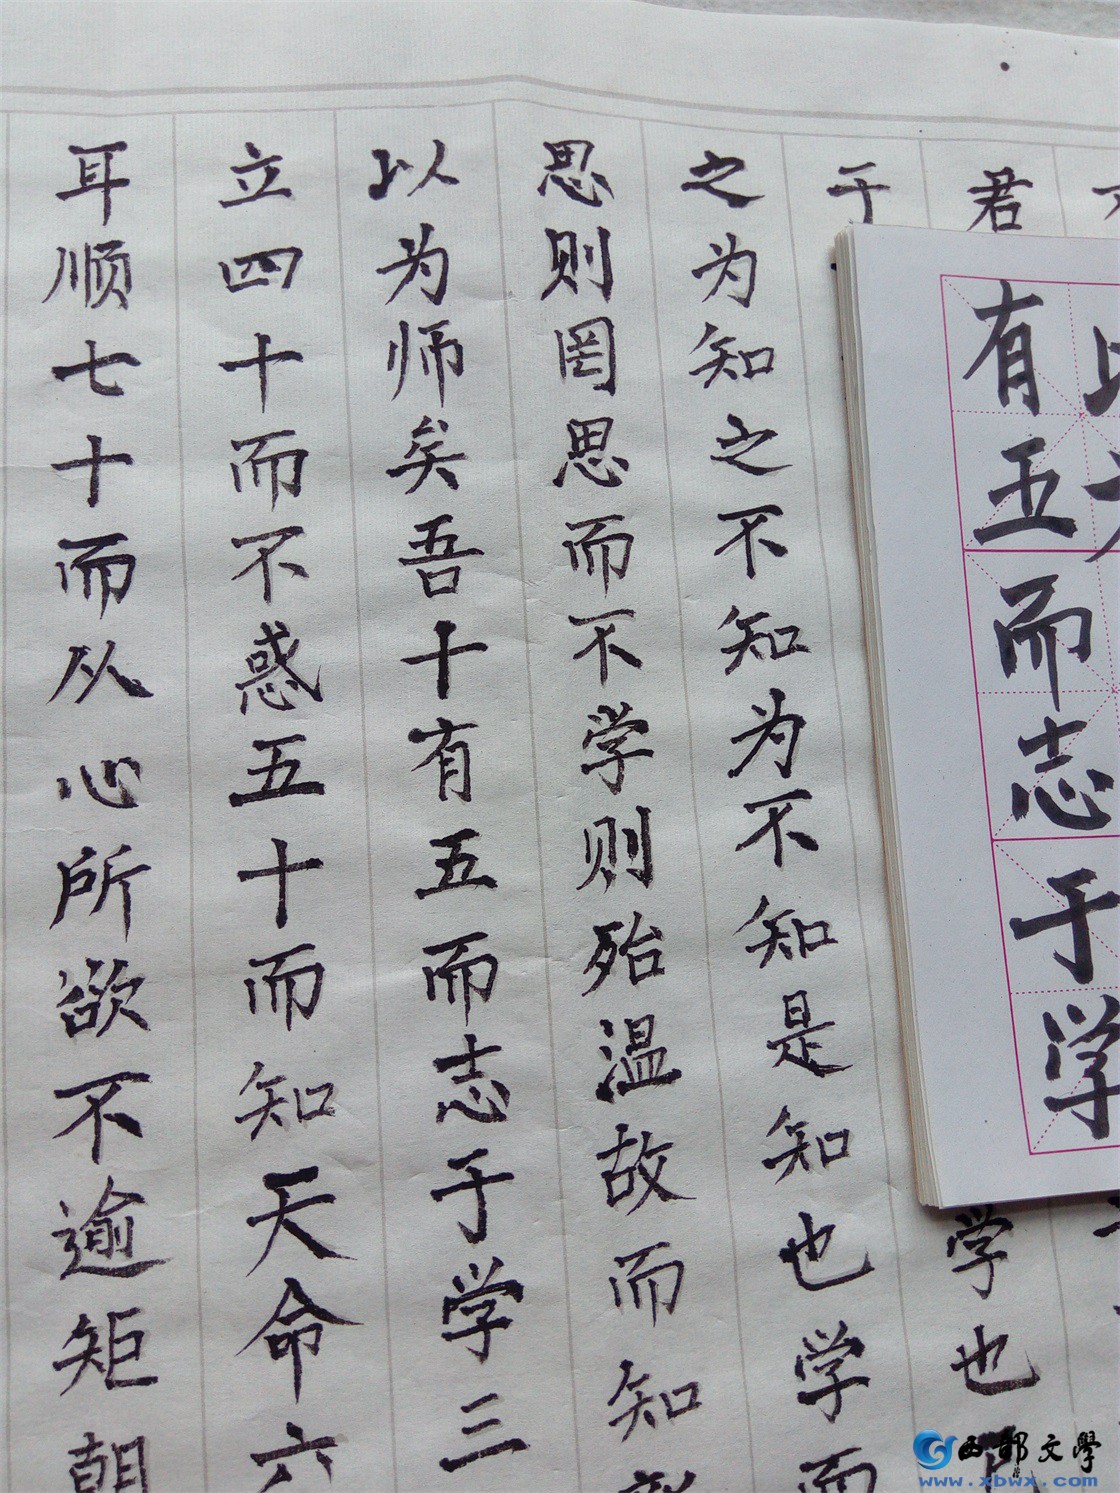 君
于
学也
之为知之不知为不知是知也学而
思则罔思而不学则殆温故而知
以为师矣吾十有五而志于学三
立四十而不惑五十而知天命六
耳顺七十而从心所欲不逾矩朝
有五而志于学
西部文學
www.xbwx.com